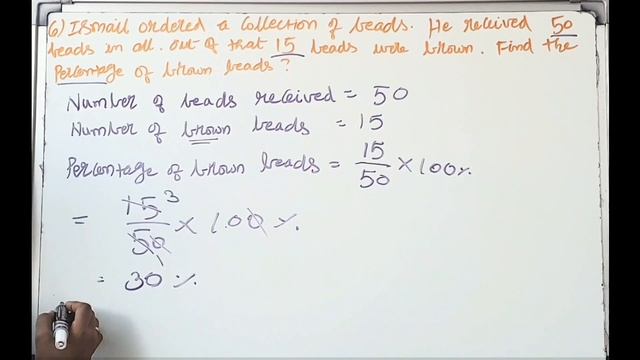 6) Ismail ordered a collection of beads. He received 50
beads in all. out of that 15 beads were brown. Find the
Percentage of brown beads?
Number of beads received = 50
Number of brown beads = 15
Percentage of brown beads = 15/50 × 100%
= 15 3/50 1 × 100 %
= 30 %